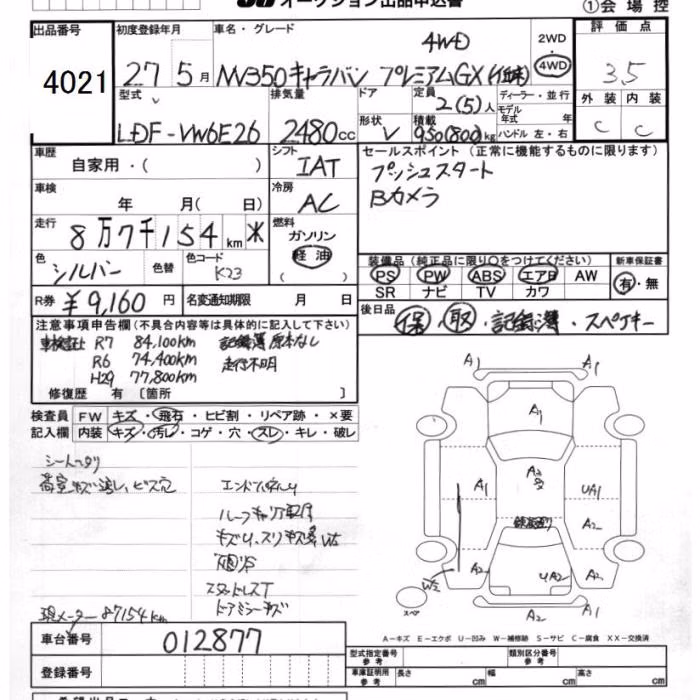 オークション出品申込書
①会場控
出品番号 4021
初度登録年月 27年5月
車名・グレード NV350キャラバン プレミアムGX 4WD
2WD 4WD
評価点 3.5
外装 C 内装 C
型式 LDF-VW6E26
排気量 2480cc
ドア形状 V
定員 2(5)人
積載 950(800)kg
ディーラー・並行
モデル年式 年式
ハンドル 左・右
車歴 自家用・( )
シフト IAT
セールスポイント (正常に機能するものに限ります)
プッシュスタート
Bカメラ
車検 年 月( 日)
冷房 AC
走行 8万7千154km
燃料 ガソリン 軽油 ( )
色 シルバー 色替 色コード K23
装備品(純正品に限り○をつけてください)
PS PW ABS エアB AW
SR ナビ TV カワ
新車保証書 有・無
R券 ¥9,160円 名変通知期限 月 日
後日品 保・取・記録簿・スペアキー
注意事項申告欄(不具合内容等は具体的に記入して下さい)
車検証上 R7 84,100km 記録簿原本なし
R6 74,400km 走行不明
H29 77,800km
修復歴 有〔箇所 〕
検査員記入欄 FW キズ・飛石・ヒビ割・リペア跡・×要
内装 キズ・汚レ・コゲ・穴・スレ・キレ・破レ
シートヘタリ
荷室キズ凹し、ビス穴
ルーフキャリア
スタットレスT
現メーター87154km
A1 A1
A1
A1 A3 UA1
A2
W2 A2 UA2 A2
スペア
A2 A1
A-キズ E-エクボ U-凹み W-補修跡 S-サビ C-腐食 XX-交換済
車台番号 012877
登録番号
型式指定番号 参考 類別区分番号 参考
車庫証明用 参考 長さ cm 幅 cm 高さ cm